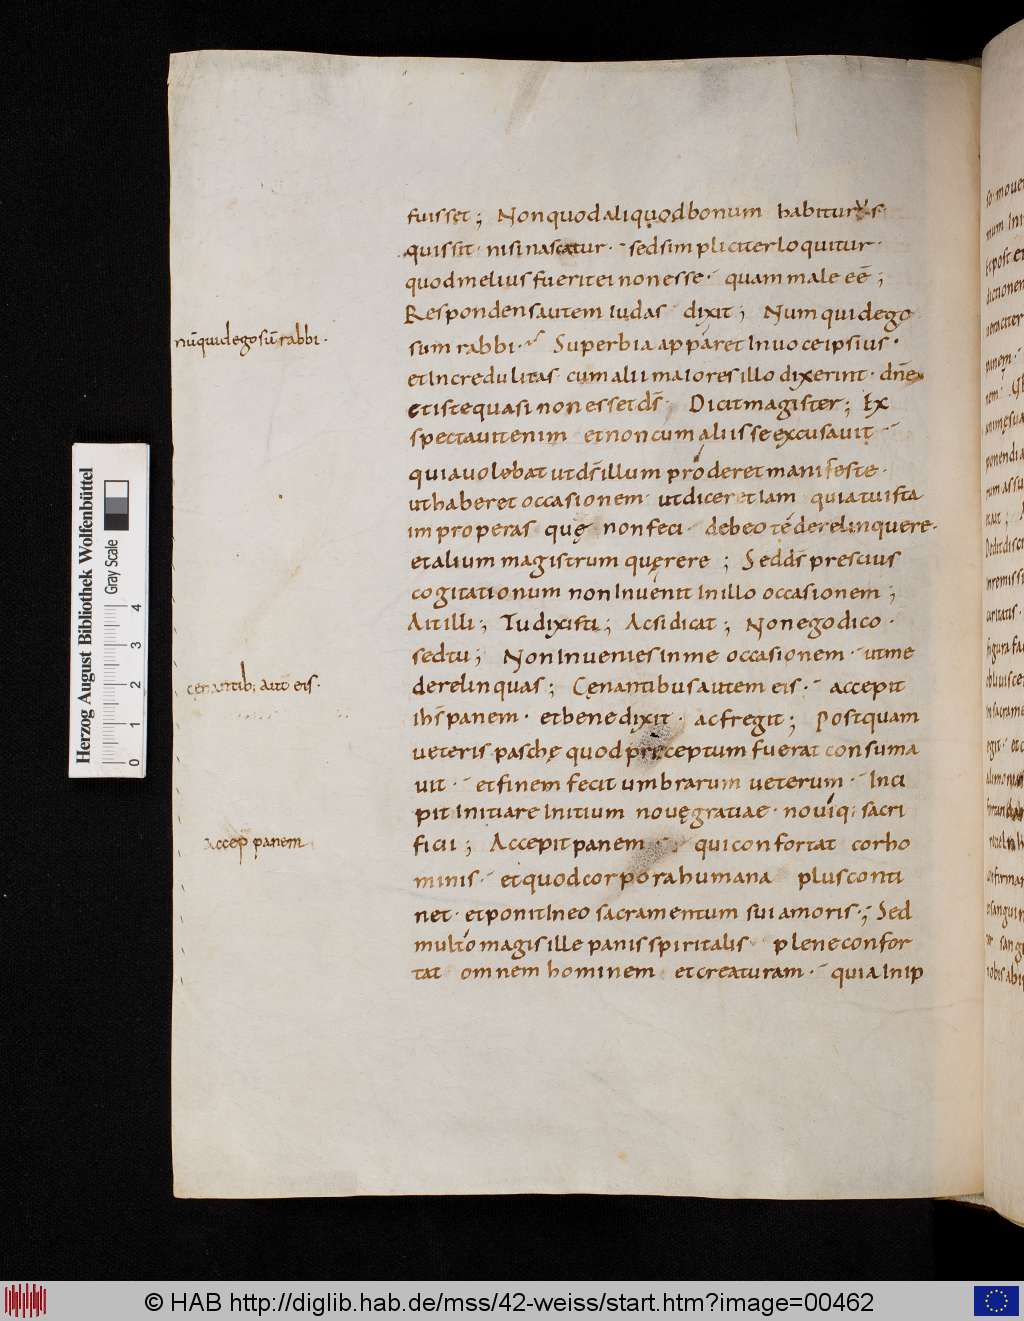 fuisset; Non quod aliquod bonum habiturus
quis sit · nisi nascatur · sed simpliciter loquitur ·
quod melius fuerit ei non esse · quam male eē;
Respondens autem iudas dixit; Numquid ego
sum rabbi · Superbia apparet in uoce ipsius ·
et incredulitas cum alii maiores illo dixerint · dn̄e
et iste quasi non esset ds̄ Dicit magister; Ex
spectauit enim et non cum aliis se excusauit
quia uolebat ut ds̄ illum proderet manifeste ·
ut haberet occasionem ut diceret iam quia tu ista
improperas quę non feci · debeo te derelinquere ·
et alium magistrum quęrere; Sed ds̄ prescius
cogitationum non inuenit in illo occasionem;
Ait illi; Tu dixisti; Ac si dicat; Non ego dico ·
sed tu; Non inuenies in me occasionem · ut me
derelinquas; Cenantibus autem eis · accepit
ihs̄ panem · et benedixit · ac fregit; Postquam
ueteris paschę quod preceptum fuerat consuma
uit · et finem fecit umbrarum ueterum · Inci
pit initiare initium nouę gratiae · nouiq; sacri
ficii; Accepit panem · qui confortat corho
minis · et quod corpora humana plus conti
net · et ponit in eo sacramentum sui amoris ·; Sed
multo magis ille panis spiritalis plene confor
tat omnem hominem et creaturam · quia in ip
nūquid ego sū rabbi ·
cęnantib; aut̄ eis ·
Accep̄ panem
Herzog August Bibliothek Wolfenbüttel
Gray Scale
0 1 2 3 4
© HAB http://diglib.hab.de/mss/42-weiss/start.htm?image=00462